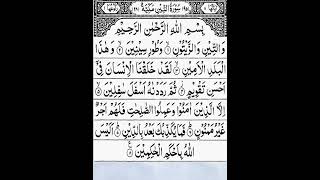 سُوۡرَةُ التِّيۡنِ مَكِّيَّةٌ
بِسْمِ اللهِ الرَّحْمٰنِ الرَّحِيْمِ
وَالتِّيْنِ وَالزَّيْتُوْنِ ۙ۱ وَطُوْرِ سِيْنِيْنَ ۙ۲ وَهٰذَا
الْبَلَدِ الْاَمِيْنِ ۙ۳ لَقَدْ خَلَقْنَا الْاِنْسَانَ فِيْۤ
اَحْسَنِ تَقْوِيْمٍ ۫۴ ثُمَّ رَدَدْنٰهُ اَسْفَلَ سٰفِلِيْنَ ۙ۵
اِلَّا الَّذِيْنَ اٰمَنُوْا وَعَمِلُوا الصّٰلِحٰتِ فَلَهُمْ اَجْرٌ
غَيْرُ مَمْنُوْنٍ ؕ۶ فَمَا يُكَذِّبُكَ بَعْدُ بِالدِّيْنِ ؕ۷ اَلَيْسَ
اللهُ بِاَحْكَمِ الْحٰكِمِيْنَ ۸